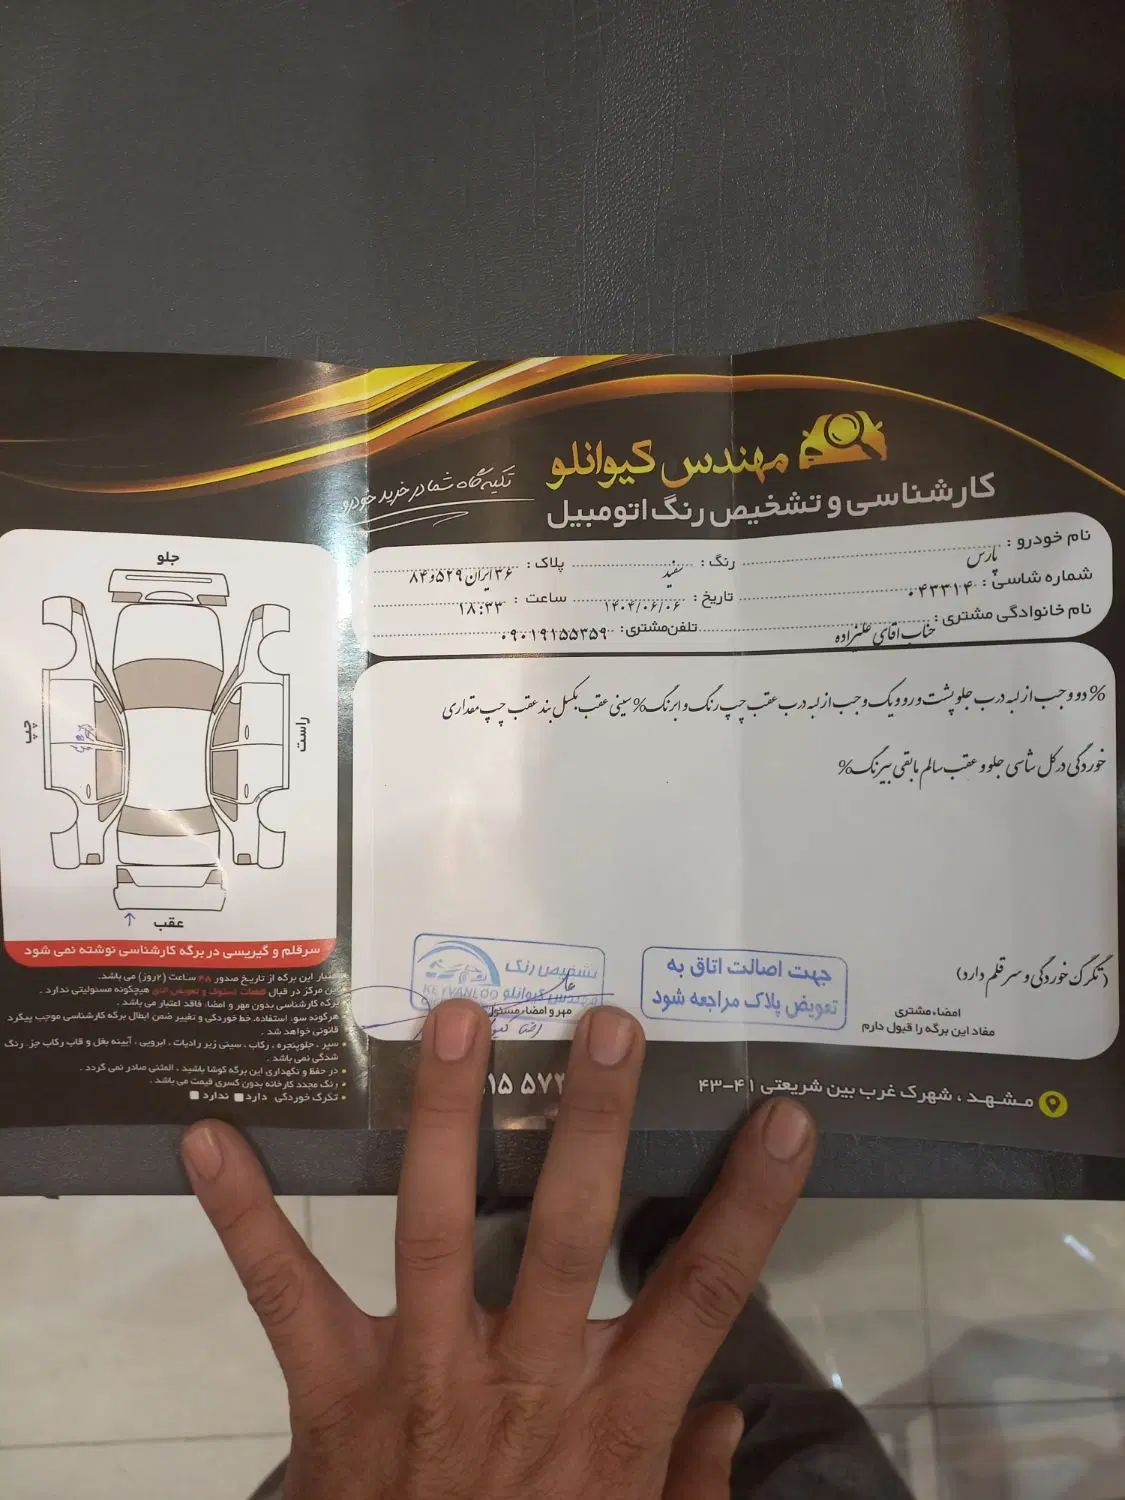 مهندس کیوانلو
کارشناسی و تشخیص رنگ اتومبیل
تکیه گاه شما در خرید خودرو
نام خودرو : پارس رنگ : سفید پلاک : ۳۶ ایران ۵۲۹ و ۸۴
شماره شاسی : ۰۴۳۳۱۴ تاریخ : ۱۴۰۴/۰۶/۰۶ ساعت : ۱۸:۳۳
نام خانوادگی مشتری : جناب اقای علیزاده تلفن مشتری : ۰۹۰۱۹۱۵۵۳۵۹
% دو وجب از لبه درب جلو پشت و رو و یک وجب از لبه درب عقب چپ رنگ و ابرنگ % سینی عقب بکسل بند عقب چپ مقداری
خوردگی در کل شاسی جلو و عقب سالم مابقی بیرنگ %
(تگرگ خوردگی و سر قلم دارد)
جهت اصالت اتاق به
تعویض پلاک مراجعه شود
تشخیص رنگ
مهندس کیوانلو
KEYVANLOO
مهر و امضاء مسئول
امضاء مشتری
مفاد این برگه را قبول دارم
جلو
چپ
راست
عقب
سرقلم و گیریسی در برگه کارشناسی نوشته نمی شود
اعتبار این برگه از تاریخ صدور ۴۸ ساعت (۲روز) می باشد.
این مرکز در قبال قطعات استوک و تعویض اتاق هیچگونه مسئولیتی ندارد .
برگه کارشناسی بدون مهر و امضا، فاقد اعتبار می باشد .
هرگونه سوء استفاده، خط خوردگی و تغییر ضمن ابطال برگه کارشناسی موجب پیگرد
قانونی خواهد شد .
سپر ، جلوپنجره ، رکاب ، سینی زیر رادیات ، ابرویی ، آیینه بغل و قاب رکاب جز رنگ
شدگی نمی باشد .
در حفظ و نگهداری این برگه کوشا باشید ، المثنی صادر نمی گردد .
رنگ مجدد کارخانه بدون کسری قیمت می باشد .
تگرگ خوردگی دارد ندارد
مشهد ، شهرک غرب بین شریعتی ۴۱-۴۳